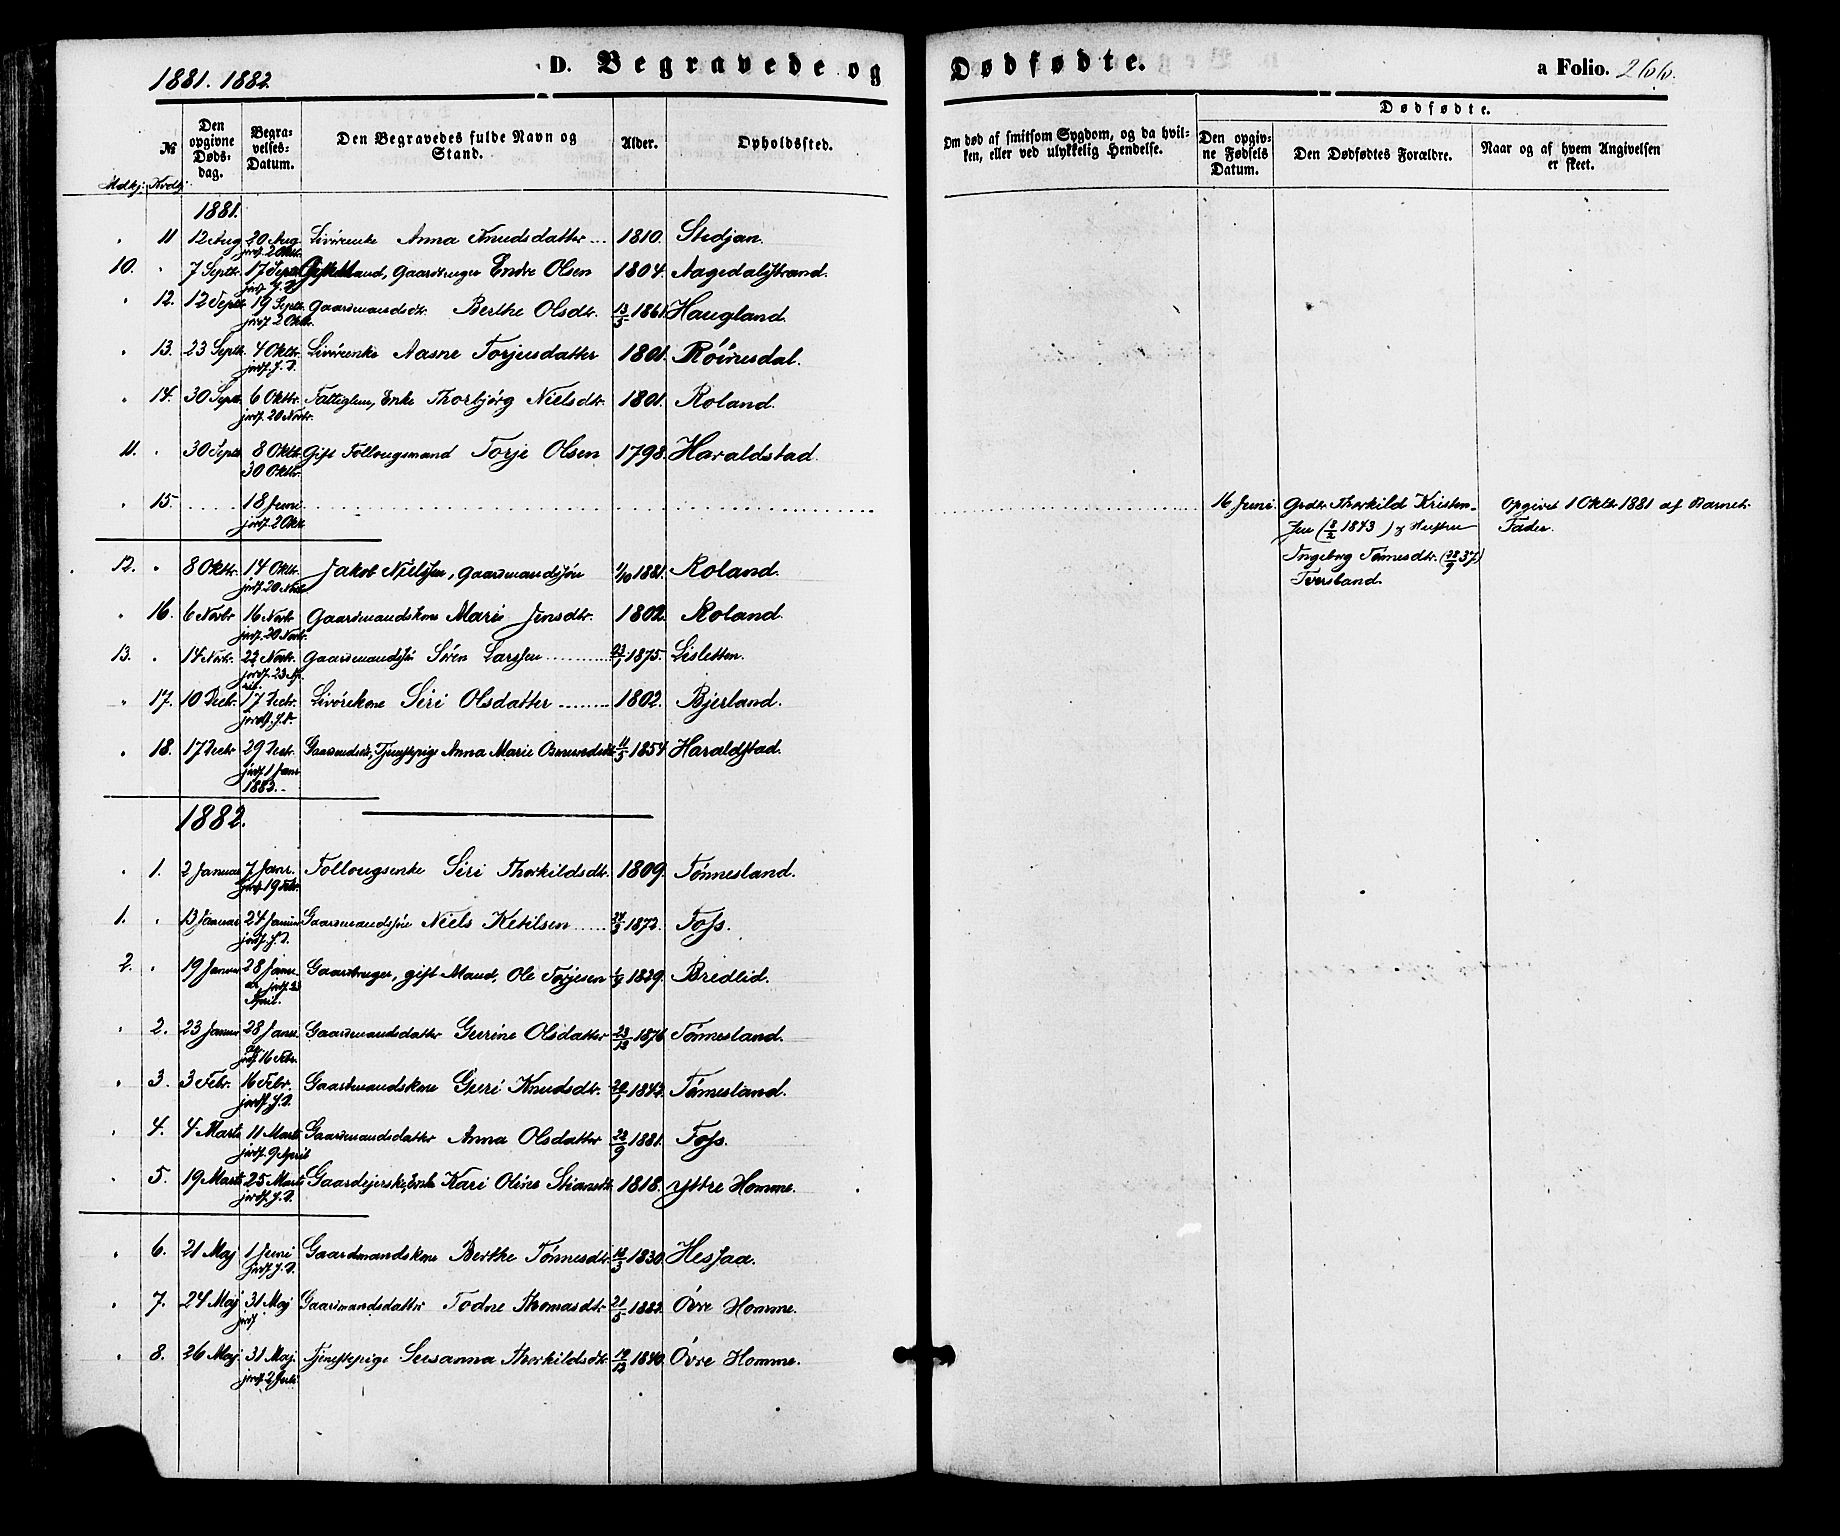 1881. 1882.
D. Begravede og Dødfødte.
a Folio. 266.
№
Mdkj: Kvdkj:
Den opgivne Døds-dag.
Begra-velses-Datum.
Den Begravedes fulde Navn og Stand.
Alder.
Opholdssted.
Om død af smitsom Sygdom, og da hvil-ken, eller ved ulykkelig Hendelse.
Dødfødte.
Den opgiv-ne Fødsels Datum.
Den Dødfødtes Forældre.
Naar og af hvem Angivelsen er skeet.
1881.
" 11 12 Aug 20 Aug. jordf. 2 Oktr. Livörenke Anna Knudsdatter 1810. Stedjan.
10. " 7 Septr. 17 Septr. jordf. s. D. Gift Mand, Gaardbruger Endre Olsen 1804. Aagedalstrand.
" 12. 12 Septr. 19 Septr. jordf 2 Oktr. Gaardmandsdtr. Berthe Olsdtr. 13/5 1861. Haugland.
" 13. 23 Septr. 4 Oktr. jordf. s. D. Livörenke Aasne Torjusdatter 1801. Röinesdal.
" 14. 30 Septr. 6 Oktbr. jordf. 20 Novbr. Fattiglem, Enke Thorbjörg Nielsdtr. 1801. Roland.
11. " 30 Septr. 8 Oktbr. 30 Oktbr. Gift Follougsmand Torje Olsen 1798. Haraldstad.
" 15. 18 Juni jordf. 2 Okt. 16 Juni. Grdbr. Thorkild Kristen-
sen (8/2 1843) og Hustru
Ingeborg Tönnesdtr. (28/9 37)
Tversland.
Opgivet 1 Oktr. 1881 af Barnets
Fader.
12. " 8 Oktbr. 14 Oktbr. jordf. 20 Novbr. Jakob Nielssen, Gaardmandssön 1/10 1881. Roland.
" 16. 6 Novbr 16 Novbr jordf. 20 Novbr. Gaardmandskone Mari Jensdtr. 1802. Roland.
13. " 14 Novbr. 22 Novbr. Gaardmandssön Sören Larssen 1875. Lisletten.
" 17. 10 Decbr. 17 Decbr. jordf. s. D. Livörekone Siri Olsdatter 1802. Bjerland.
" 18. 17 Decbr 29 Decbr. jordf 1 Janr 1882. Tjenstepige Anna Marie 11/5 1854. Haraldstad.
1882.
" 1. 2 Januar 7 Janr. jordf 19 Febr. Follougsenke Siri Thorkildsdtr. 1809. Tönnesland.
1. " 13 Januar 24 Januar jordf. s. D. Gaardmandssön Niels Ketilsen 1872. Foss.
2. " 19 Januar 28 Janr. April. Gaardbruger, gift Mand, Ole Torjesen 1829. Bredlid.
" 2. 23 Januar 28 Janr. jordf 16 Febr. Gaardmandsdatter Gurine Olsdatter 23/12 1876 Tönnesland.
" 3. 3 Febr. 16 Febr. jordf. s. D. Gaardmandskone Guri Knudsdtr. 1842. Tönnesland.
" 4. 4 Marts 11 Marts jordf. 9 April Gaardmandsdatter Anna Olsdatter 22/9 1881. Foss.
" 5. 19 Marts 25 Marts jordf. s. D. Gaardejerske, Enke Kari Oline 1818. Yttre Homme.
" 6. 21 Maj 1 Juni jordf. s. D. Gaardmandskone Berthe Tönnesdtr. 1830. Hessaa.
" 7. 24 Maj 31 Maj jordf Gaardmandsdatter Todne Thomasdtr 21/5 1882. Övre Homme.
" 8. 26 Maj 31 Maj. jordf 2 Juli Tjenstepige Susanna Thorkildsdtr. 19/12 1840. Övre Homme.